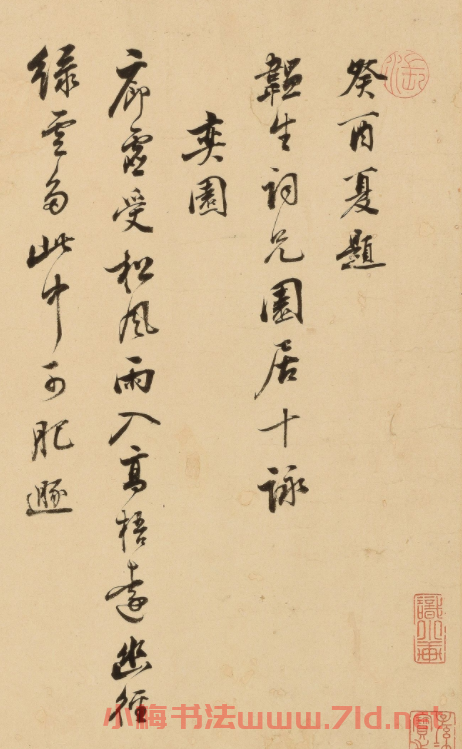 癸酉夏題
韞生詞兄園居十詠
奕園
廊虛受松風雨入高梧遶幽徑
綠雲多此中可肥遯
小梅书法www.7ld.net